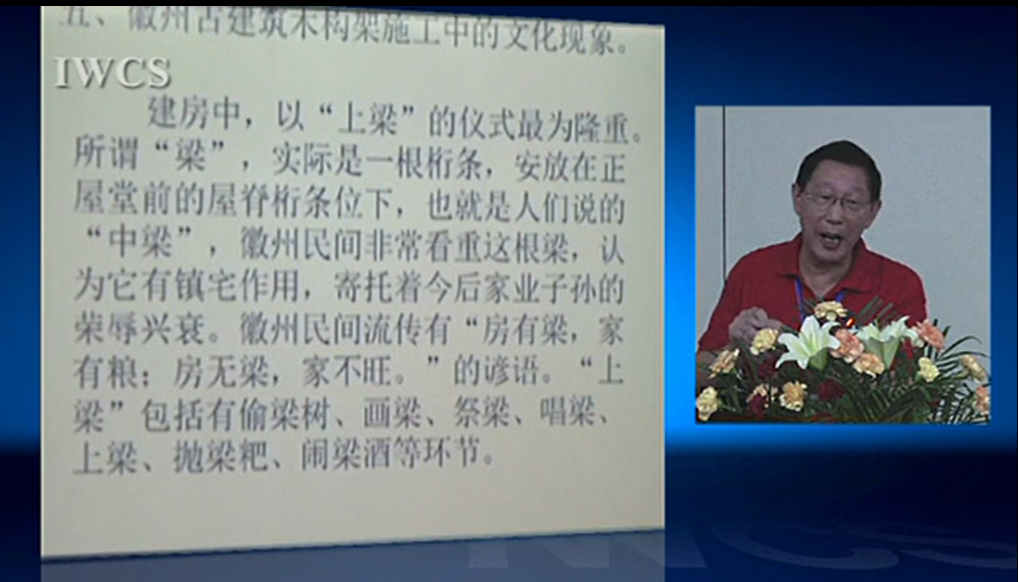 五、徽州古建筑木构架施工中的文化现象。
IWCS
建房中，以“上梁”的仪式最为隆重。
所谓“梁”，实际是一根桁条，安放在正
屋堂前的屋脊桁条位下，也就是人们说的
“中梁”，徽州民间非常看重这根梁，认
为它有镇宅作用，寄托着今后家业子孙的
荣辱兴衰。徽州民间流传有“房有梁，家
有粮；房无梁，家不旺。”的谚语。“上
梁”包括有偷梁树、画梁、祭梁、唱梁、
上梁、抛梁粑、闹梁酒等环节。
IWCS